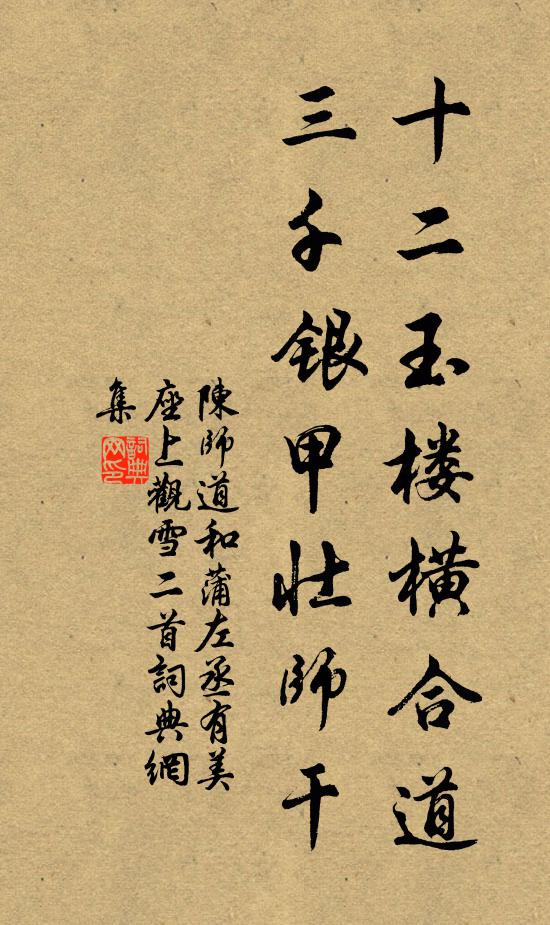 十二玉楼横合道
三千银甲壮师干
陳師道和蒲左丞有美
座上觀雪二首詞典網
集
詞典网印